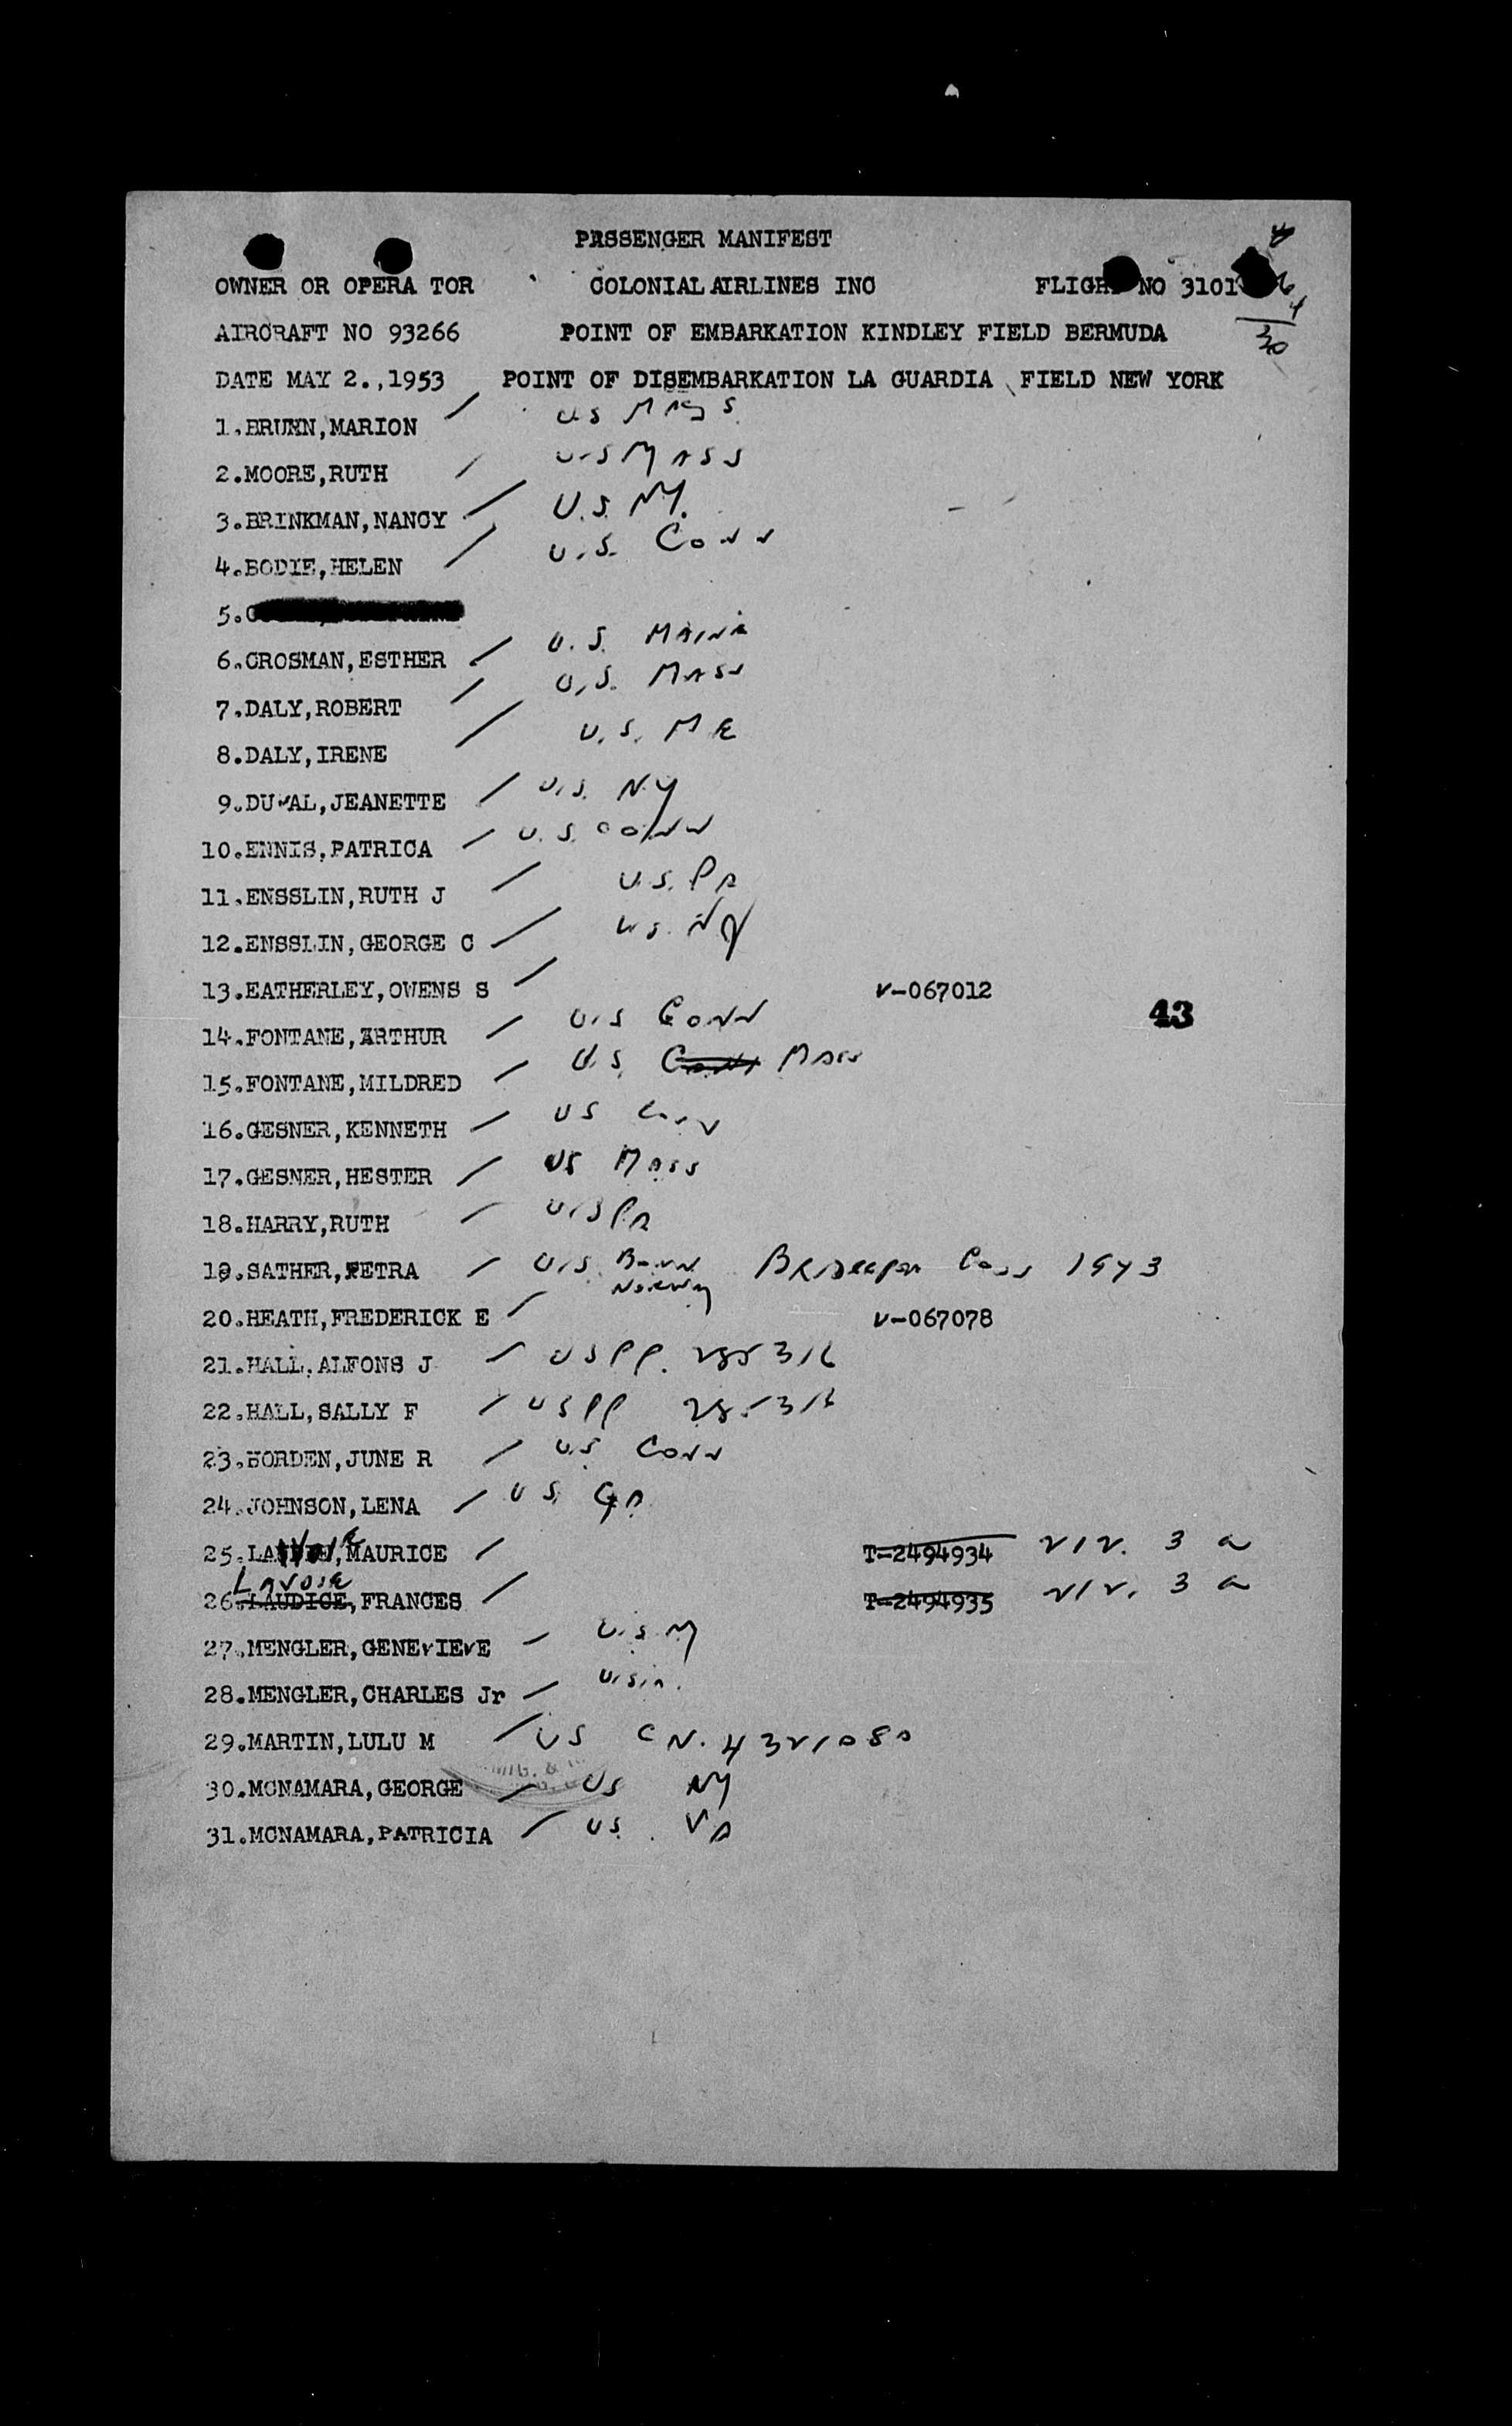 PASSENGER MANIFEST
OWNER OR OPERA TOR COLONIAL AIRLINES INC FLIGHT NO 3101
AIRCRAFT NO 93266 POINT OF EMBARKATION KINDLEY FIELD BERMUDA
30
DATE MAY 2.,1953 POINT OF DISEMBARKATION LA GUARDIA FIELD NEW YORK
1.BRUEN,MARION / US MASS
2.MOORE,RUTH / U.S MASS
3.BRINKMAN,NANCY / U.S. NY.
4.BODIE,HELEN / U.S. CONN
5.
6.CROSMAN,ESTHER / U.S. MAINE
7.DALY,ROBERT / U.S. MASS
8.DALY,IRENE / U.S. ME
9.DUVAL,JEANETTE / U.S. NY
10.ENNIS,PATRICA / U.S. CONN
11.ENSSLIN,RUTH J / U.S. PA
12.ENSSLIN,GEORGE C / U.S. NY
13.EATHERLEY,OWENS S / V-067012
43
14.FONTANE,ARTHUR / U.S CONN
15.FONTANE,MILDRED / U.S. CONN MASS
16.GESNER,KENNETH / US CONN
17.GESNER,HESTER / US MASS
18.HARRY,RUTH / U.S PA
19.SATHER,PETRA / U.S. BORN NORWAY 1943
20.HEATH,FREDERICK E / V-067078
21.HALL,ALFONS J / US PP. 285316
22.HALL,SALLY F / US PP 285316
23.BORDEN,JUNE R / U.S CONN
24.JOHNSON,LENA / U S. GA.
25.LAVOIE,MAURICE / T-2494934 212. 3 a
LAVOIE
26.LAUDICE,FRANCES / T-2494935 212. 3 a
27.MENGLER,GENEVIEVE / U.S.
28.MENGLER,CHARLES Jr /
29.MARTIN,LULU M / US CN. 4321080
30.MCNAMARA,GEORGE / US NY
31.MCNAMARA,PATRICIA / US. VA